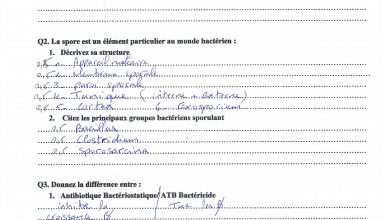 Q2. La spore est un élément particulier au monde bactérien :
1. Décrivez sa structure
0,5 1. Appareil nucléaire
0,5 2. membrane sporale
0,5 3. paroi sporale
0,5 4. Tunique ( interne + externe )
0,5 5. Cortex 6. Exosporium
2. Citez les principaux groupes bactériens sporulant
0,5 Bacillus
0,5 Clostridium
0,5 Sporosarcina
Q3. Donnez la différence entre :
1. Antibiotique Bactériostatique/ ATB Bactéricide
inhibe la / Tue les
croissance